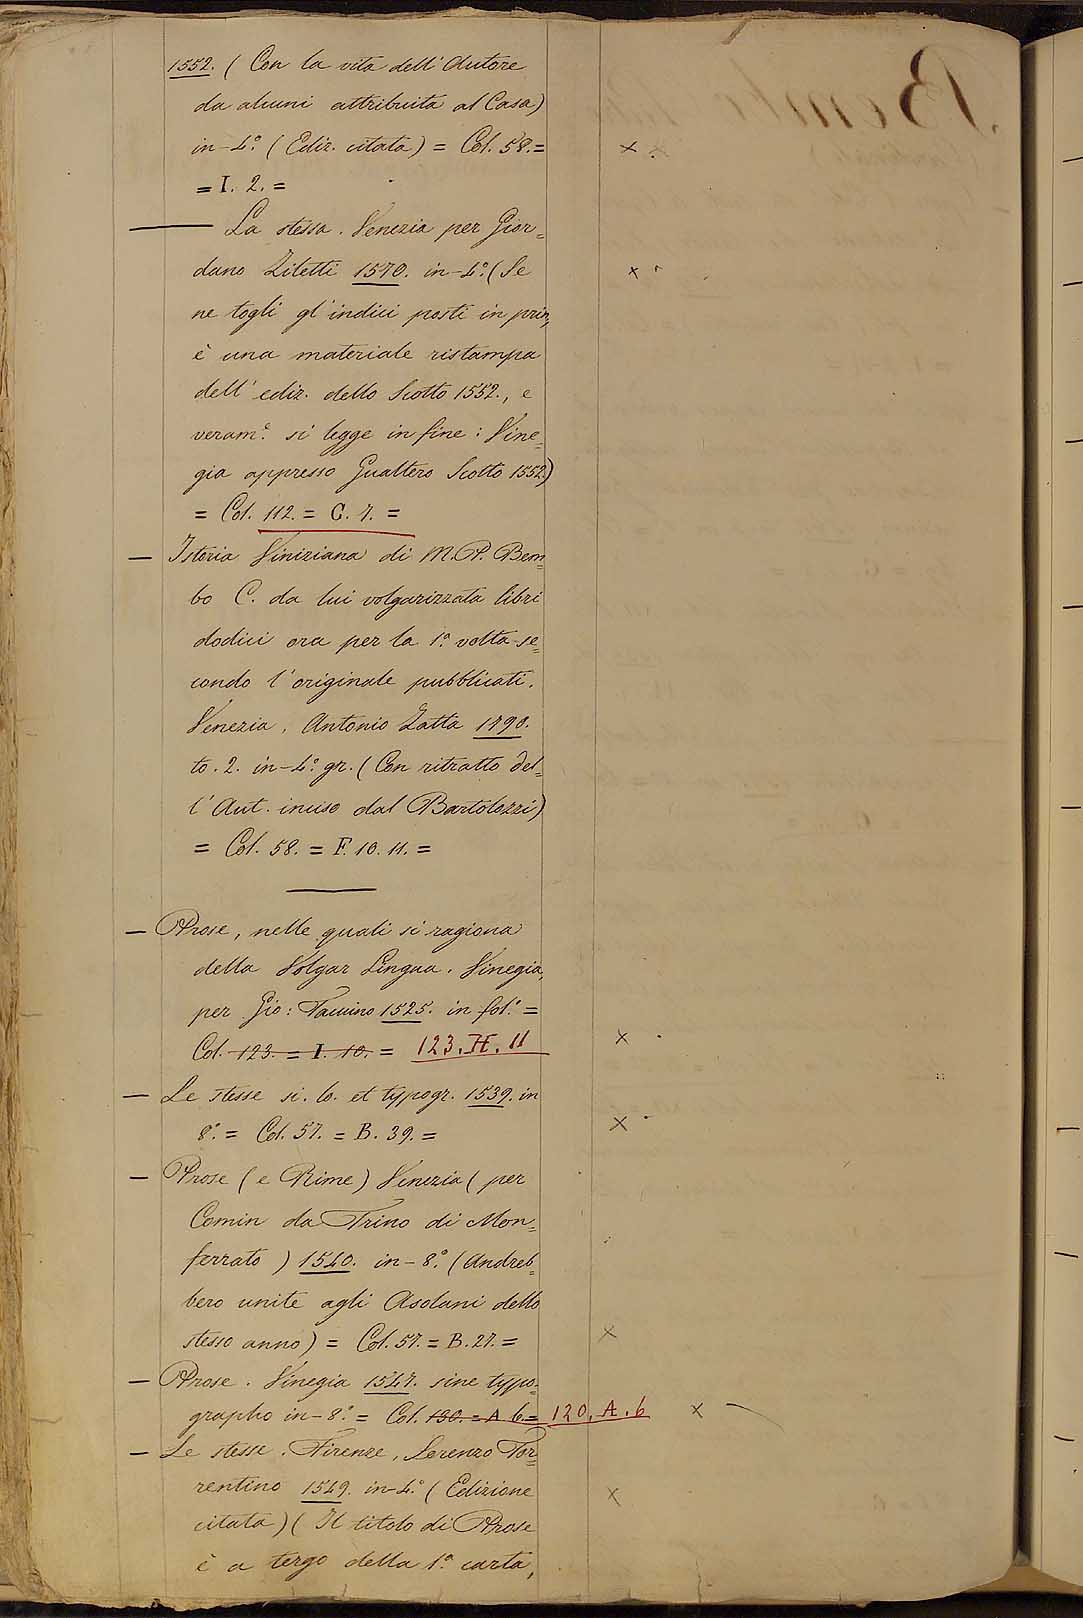 1552. (Con la vita dell'Autore
da alcuni attribuita al Casa)
in-4.° (Ediz. citata) = Col. 58. =
= I. 2. =
— La stessa. Venezia per Gior=
dano Ziletti 1570. in-4.° (Se
ne togli gl'indici posti in prin,
è una materiale ristampa
dell'ediz. dello Scotto 1552., e
veram.e si legge in fine: Vine=
gia appresso Gualtero Scotto 1552)
= Col. 112. = C. 7. =
— Istoria Viniziana di M. P. Bem=
bo C. da lui volgarizzata libri
dodici ora per la 1.a volta se=
condo l'originale pubblicati.
Venezia, Antonio Zatta 1790.
to. 2. in-4.° gr. (Con ritratto del=
l'Aut. inciso dal Bartolozzi)
= Col. 58. = F. 10. 11. =
— Prose, nelle quali si ragiona
della Volgar Lingua. Vinegia,
per Gio: Tacuino 1525. in fol.° =
Col. 123. = I. 10. = 123. H. 11
— Le stesse si. lo. et typogr. 1539. in
8.° = Col. 57. = B. 39. =
— Prose (e Rime) Venezia (per
Comin da Trino di Mon=
ferrato) 1540. in-8.° (Andreb=
bero unite agli Asolani dello
stesso anno) = Col. 57. = B. 27. =
— Prose. Vinegia 1547. sine typo=
grapho in-8.° = Col. 130. = A 6. = 120. A. 6
— Le stesse. Firenze, Lorenzo Tor=
rentino 1549. in-4.° (Edizione
citata) (Il titolo di Prose
è a tergo della 1.a carta,